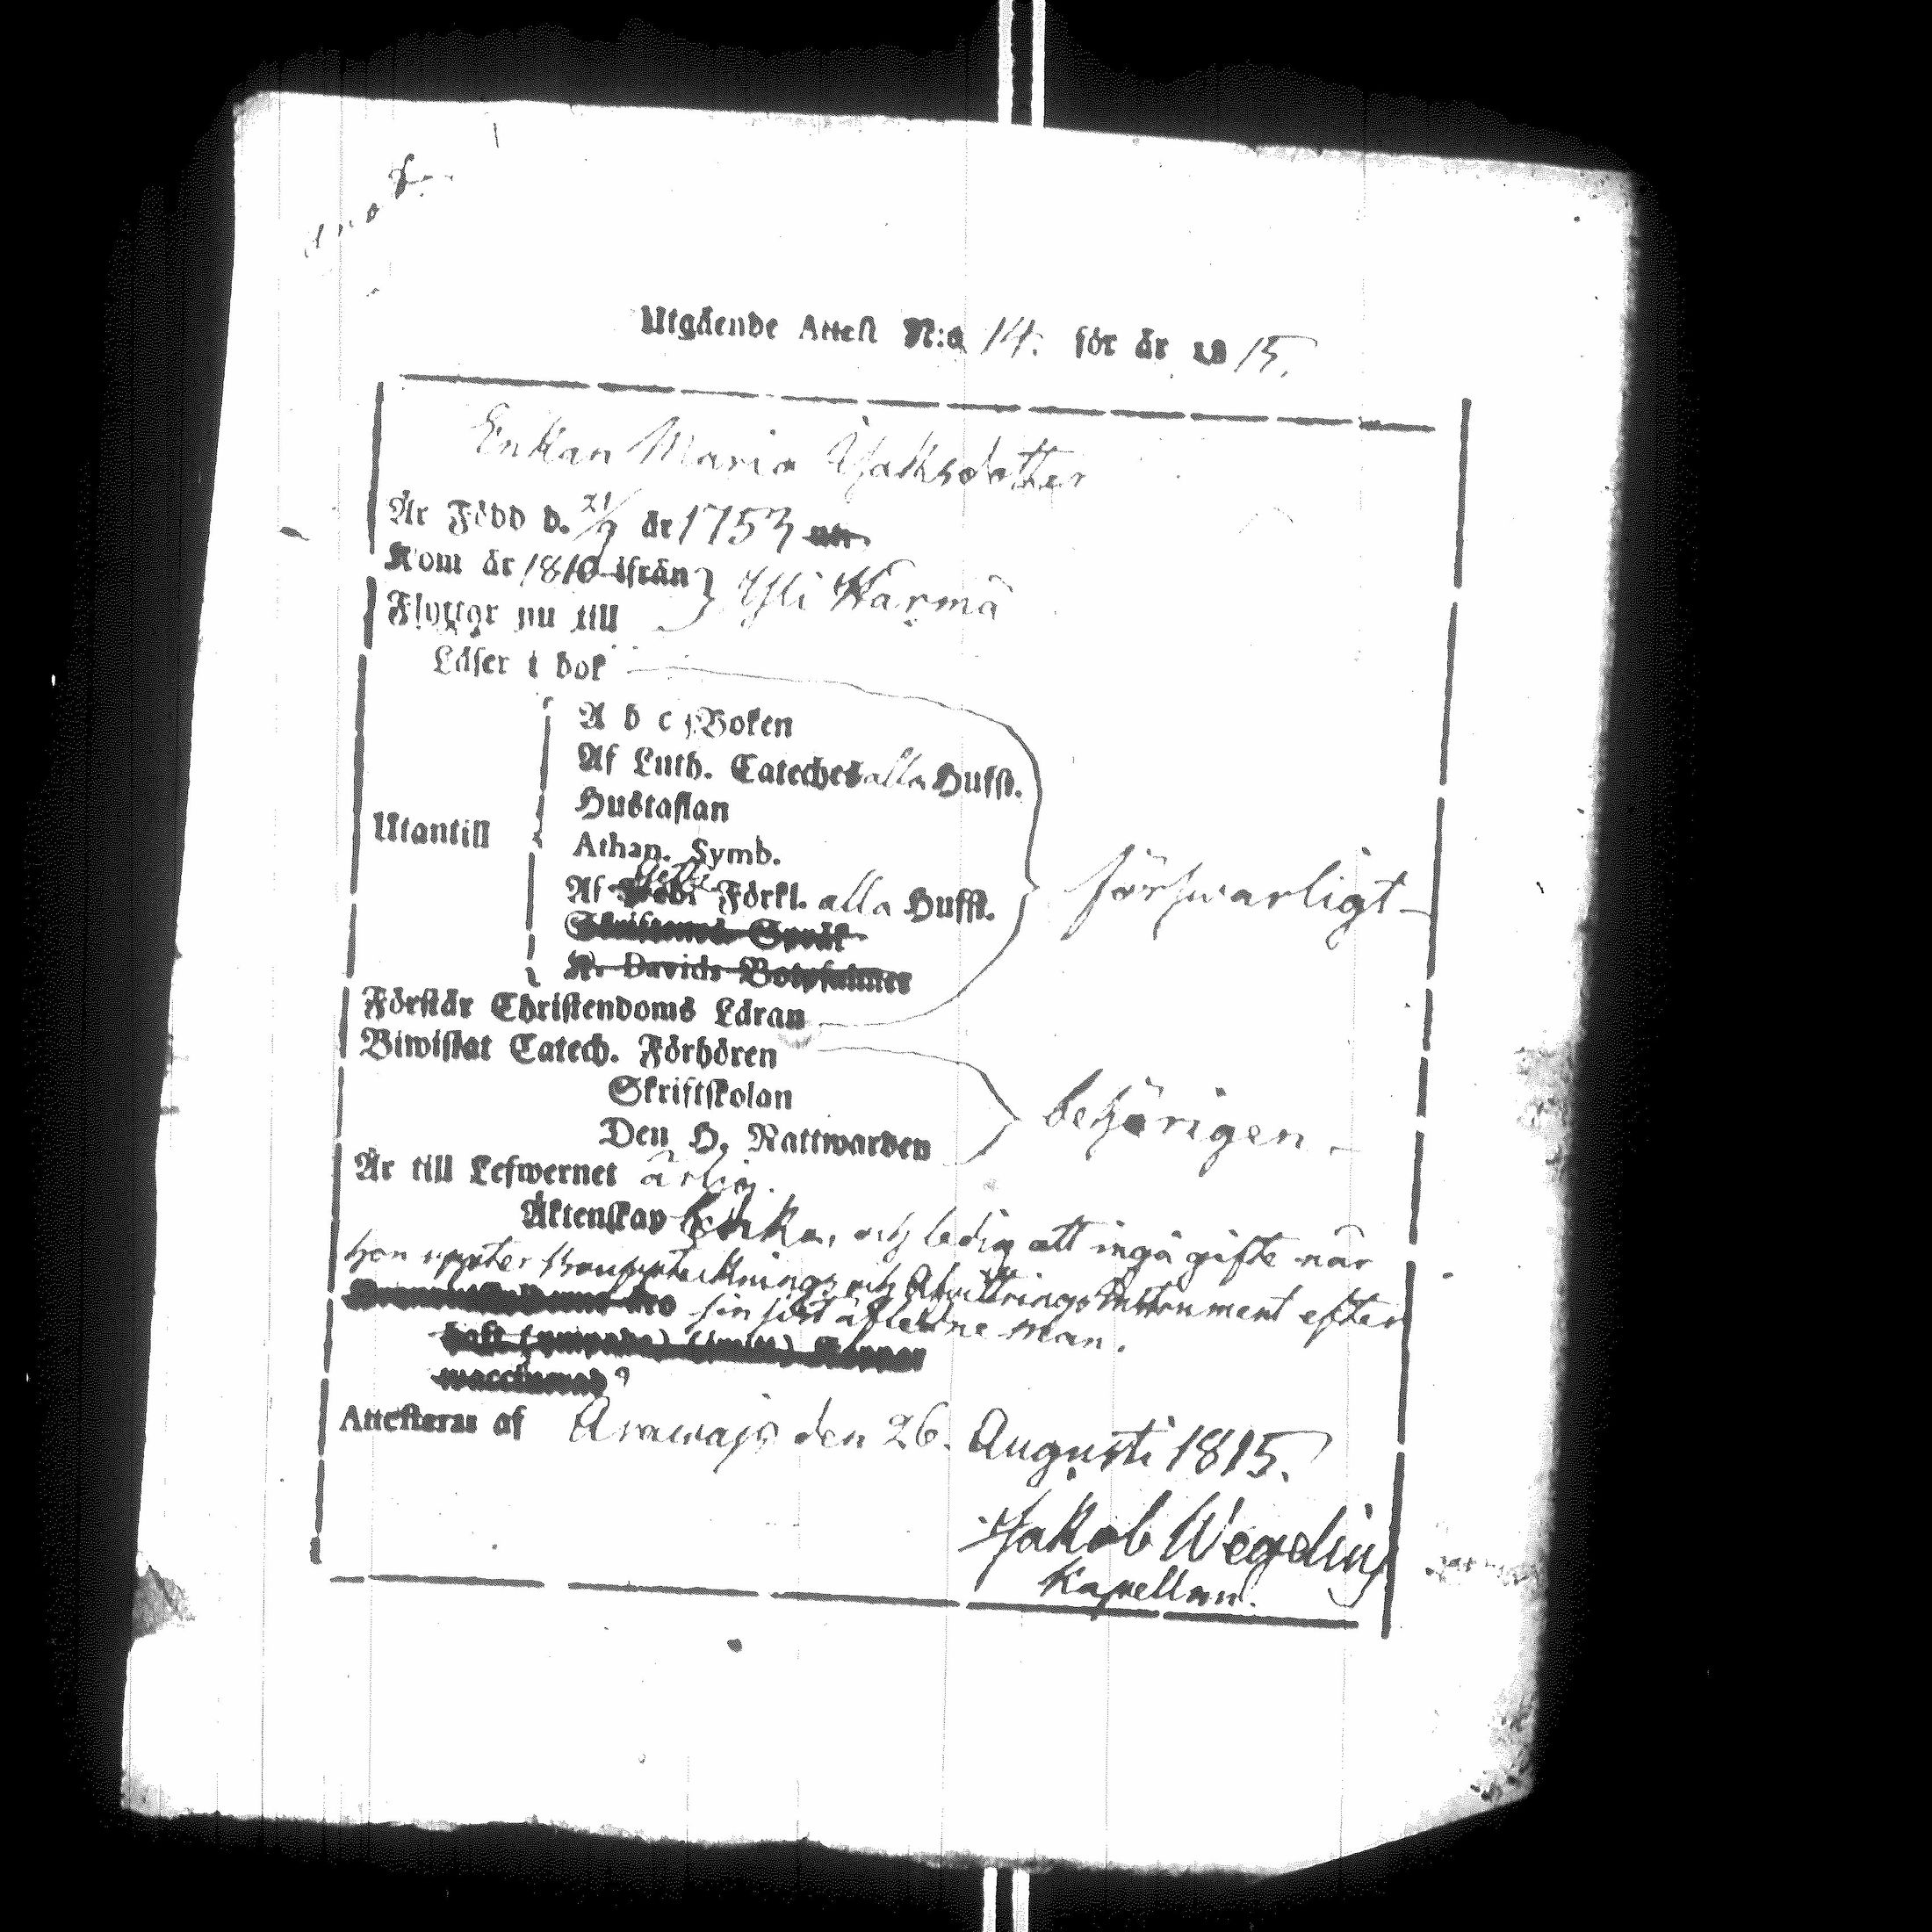 Utgående Attest N:o 14. för år 1815.
Enkan Maria Isaksdotter
Är Född d. 21/9 år 1753
Kom år 1810 ifrån } Yli Härmä
Flyttar nu till
Läser i bok
A b c Boken
Af Luth. Cateches alla Hufst.
Hustaflan
Utantill
Athan. Symb.
Af Förkl. alla Hufst.
förswarligt
K. Davids Botpsalmer
Förstår Christendoms Läran
Biwistat Catech. Förhören
Skriftskolan
behörigen
Den H. Nattwarden
Är till Lefwernet ärlig.
Äktenskap Enka, och ledig att ingå gifte när
hon uppter Bouppteknings och Afwittrings Instrument efter
sin sist afledne man.
Attesteras af Arawajs den 26. Augusti 1815.
Jakob Wegelius
Kapellan.